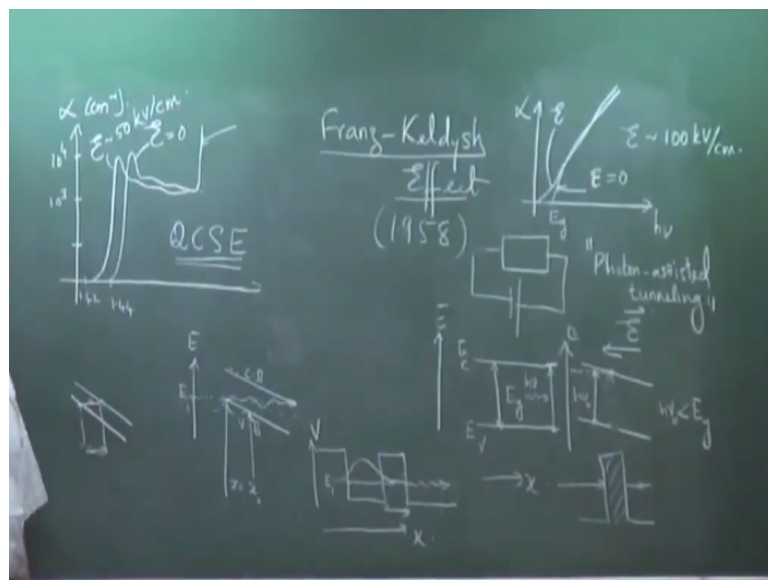 α (cm⁻¹).
ℰ ~ 50 kV/cm.
ℰ=0
10⁴
10³
1.42
1.44
QCSE
Franz-Keldysh
Effect
(1958)
α
ℰ
ℰ ~ 100 kV/cm.
ℰ=0
E_g
hν
"Photon-assisted
tunneling"
ℰ
E
E_c
E_g
hν
hν₀
hν₀ < E_g
E_v
x
E
E₁
C.B
V.B
x=x₀
V
E₁
x.